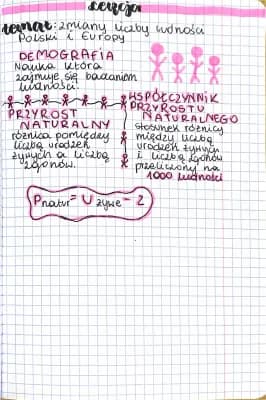 lekcja
temat: zmiany liczby ludności
Polski i Europy
DEMOGRAFIA
Nauka która
zajmuje się badaniem
ludności.
PRZYROST
NATURALNY
różnica pomiędzy
liczbą urodzeń
żywych a liczbą
zgonów.
WSPÓŁCZYNNIK
PRZYROSTU
NATURALNEGO
stosunek różnicy
między liczbą
urodzeń żywych
i liczbą zgonów
przeliczony na
1000 ludności
Pnatur = U żywe - Z